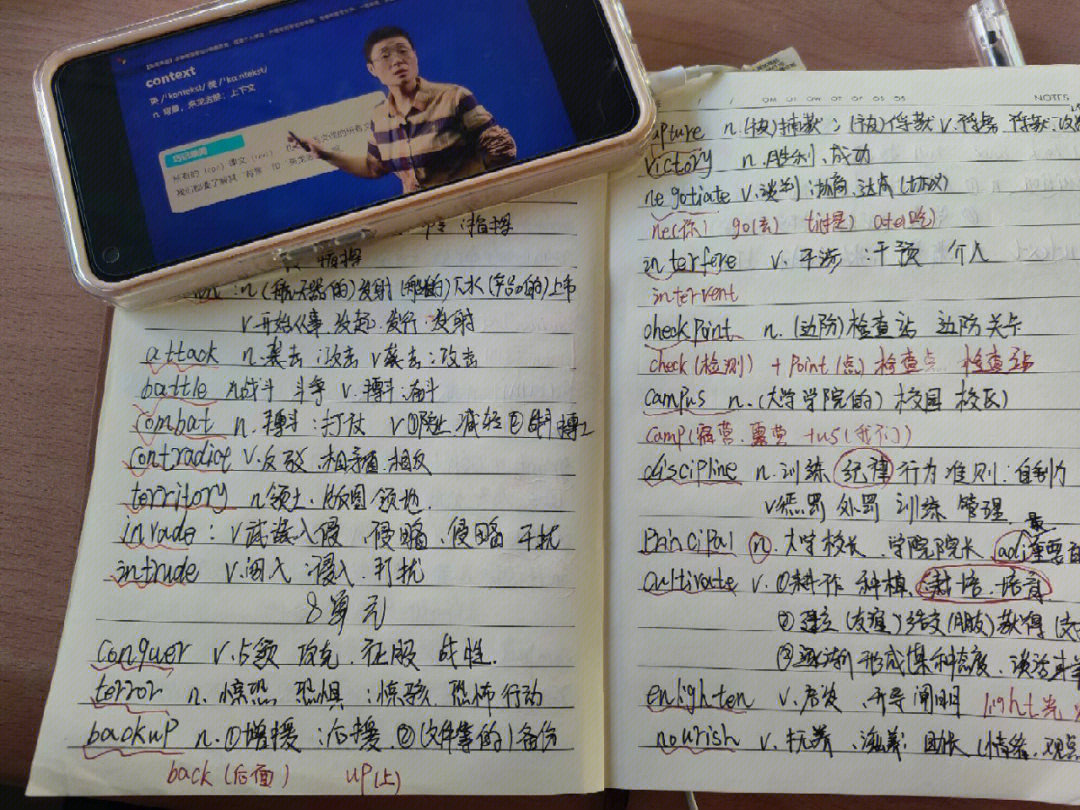 context
英 /ˈkɒntekst/ 美 /ˈkɑːntekst/
n. 背景，来龙去脉；上下文
巧记单词
指挥
指挥
n.(称武器的)发射(船的)下水(产品的)上市
v.开始从事 发起.发行.发射
attack n.袭击;攻击 v袭击;攻击
battle n战斗 斗争 v.搏斗.奋斗
combat n.搏斗;打仗 v①防止.减轻②战斗 搏斗
contradict v.反驳.相矛盾.相反
territory n领土.版图 领地.
invade: v武装入侵.侵略、侵略 干扰
intrude v.闯入.侵入.打扰
8单元
conquer v.占领 攻克.征服 战胜.
terror n.惊恐.恐惧;惊骇.恐怖行动
backup n.①增援;后援.②(文件等的)备份
back(后面) up(上)
NOTES
apture n.(被)捕获;(被)俘获 v.俘虏.俘获.
victory n.胜利.成功
negotiate v.谈判.协商.达成(协议)
ne(你) go(去) ti(提) ate(吃)
interfere v.干涉;干预 介入
intervent
checkpoint n.(边防)检查站 边防关卡
check(检测)+Point(点)检查点 检查站
campus n.(大学学院的)校园 校区)
camp(宿营.露营 +us(我们)
discipline n.训练 纪律 行为准则:自制力
v惩罚 处罚 训练 管理
Principal n.大学校长.学院院长 adj最重要的
cultivate v.①耕作 种植.栽培.培育
②建立(友谊)结交(朋友)获得
③逐渐形成(某种态度、谈话
enlighten v.启发.开导 阐明 light光
nourish v.抚养、滋养.助长(情绪.观点